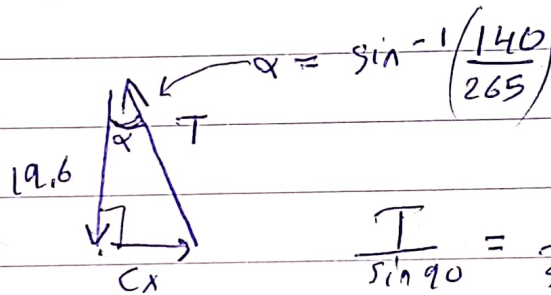 α = sin⁻¹(140/265)
α T
19.6
Cx
T/sin 90 =